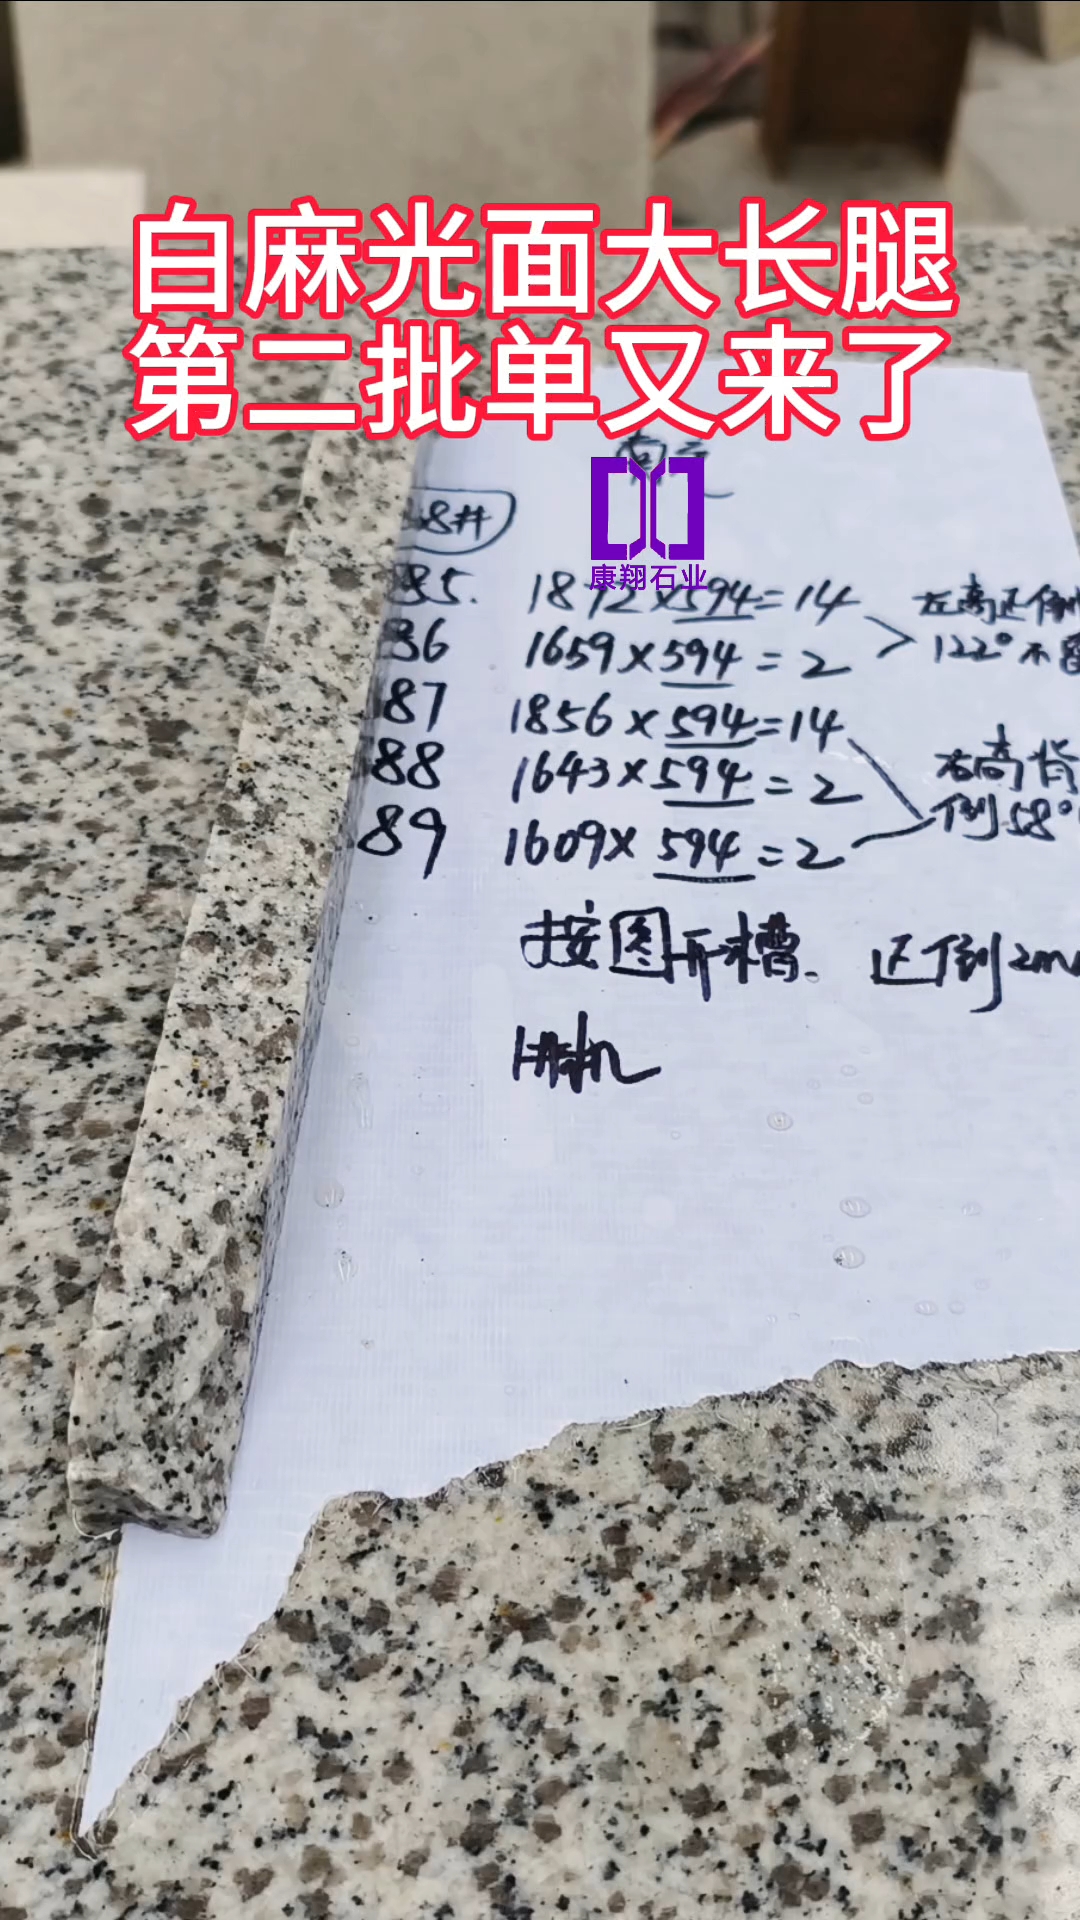 白麻光面大长腿
第二批单又来了
康翔石业
68#
85. 1872×594=14
86 1659×594=2
87 1856×594=14
88 1643×594=2
89 1609×594=2
左高正倒
122° 不留
右高背
倒58°
按图开槽. 正倒2m